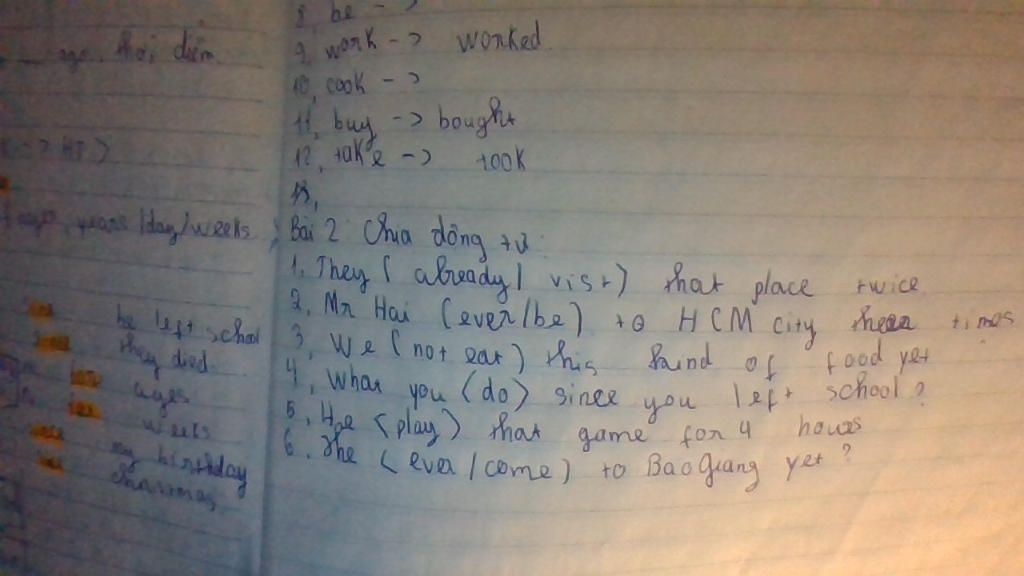 ago, thời điểm
ago, years /day/weeks
he left school
they died
ages
weeks
my birthday
christmas
8, be ->
9, work -> worked
10, cook ->
11, buy -> bought
12, take -> took
13,
Bài 2 Chia động từ:
1. They ( already / visit ) that place twice
2. Mr Hai (ever/be) to HCM city times
3. We (not eat) this kind of food yet
4, What you (do) since you left school?
5, He (play) that game for 4 hours
6. She (ever/come) to Bac Giang yet?